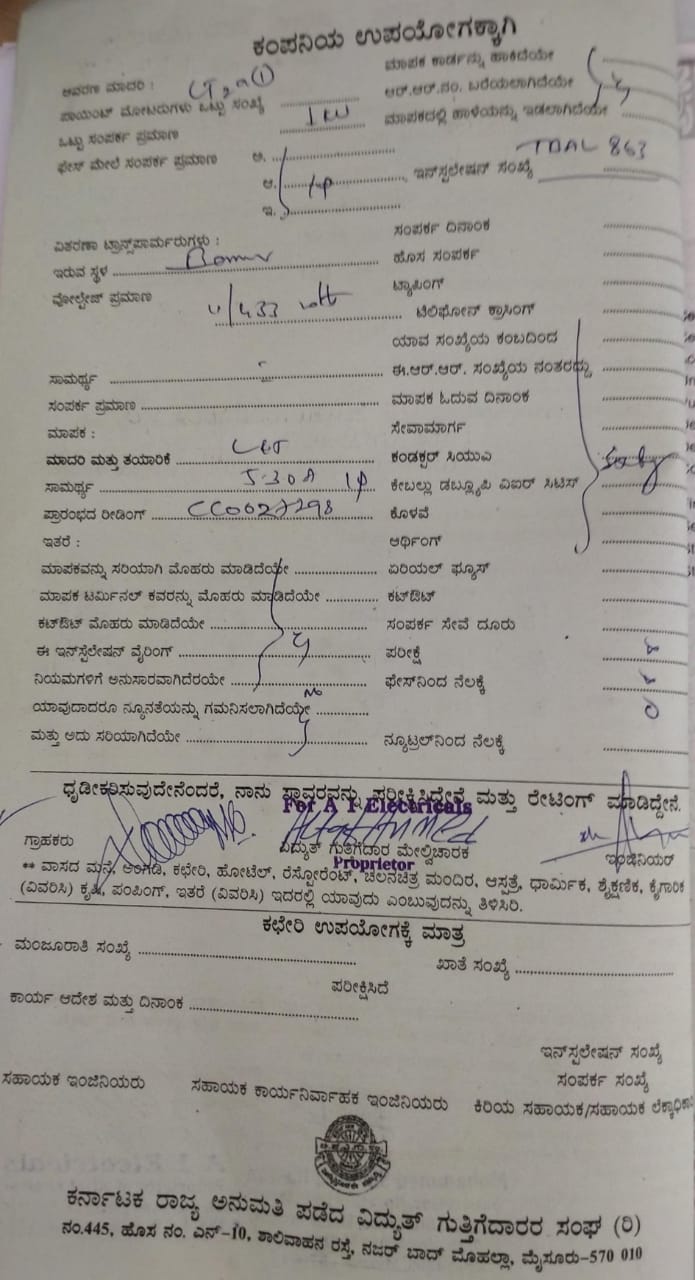 ಕಂಪನಿಯ ಉಪಯೋಗಕ್ಕಾಗಿ
ಆವರಣ ಮಾದರಿ :
ಮಾಪಕ ಕಾರ್ಡನ್ನು ಹಾಕಿದೆಯೇ
ಪಾಯಿಂಟ್ ಮೋಟರುಗಳು ಒಟ್ಟು ಸಂಖ್ಯೆ
ಆರ್.ಆರ್.ನಂ. ಬರೆಯಲಾಗಿದೆಯೇ
ಒಟ್ಟು ಸಂಪರ್ಕ ಪ್ರಮಾಣ 1 KW
ಮಾಪಕದಲ್ಲಿ ಹಾಳೆಯನ್ನು ಇಡಲಾಗಿದೆಯೇ
ಫೇಸ್ ಮೇಲೆ ಸಂಪರ್ಕ ಪ್ರಮಾಣ ಅ.
ಆ. ಇನ್‌ಸ್ಟಲೇಷನ್ ಸಂಖ್ಯೆ TDAL 863
ಇ.
ಸಂಪರ್ಕ ದಿನಾಂಕ
ವಿತರಣಾ ಟ್ರಾನ್ಸ್‌ಪಾರ್ಮರುಗಳು :
ಇರುವ ಸ್ಥಳ
ಹೊಸ ಸಂಪರ್ಕ
ವೋಲ್ಟೇಜ್ ಪ್ರಮಾಣ 11/433 volt
ಟ್ಯಾಪಿಂಗ್
ಟೆಲಿಫೋನ್ ಕ್ರಾಸಿಂಗ್
ಯಾವ ಸಂಖ್ಯೆಯ ಕಂಬದಿಂದ
ಸಾಮರ್ಥ್ಯ
ಈ.ಆರ್.ಆರ್. ಸಂಖ್ಯೆಯ ನಂತರದ್ದು
ಸಂಪರ್ಕ ಪ್ರಮಾಣ
ಮಾಪಕ ಓದುವ ದಿನಾಂಕ
ಮಾಪಕ :
ಸೇವಾಮಾರ್ಗ
ಮಾದರಿ ಮತ್ತು ತಯಾರಿಕೆ L&T
ಕಂಡಕ್ಟರ್ ಸಿಯುಎ
ಸಾಮರ್ಥ್ಯ 5-30A
ಕೇಬಲ್ಲು ಡಬ್ಲ್ಯೂಪಿ ವಿಐರ್ ಸಿಟಿಸ್
ಪ್ರಾರಂಭದ ರೀಡಿಂಗ್ CC0027298
ಕೊಳವೆ
ಇತರೆ :
ಆರ್ಥಿಂಗ್
ಮಾಪಕವನ್ನು ಸರಿಯಾಗಿ ಮೊಹರು ಮಾಡಿದೆಯೇ
ಏರಿಯಲ್ ಫ್ಯೂಸ್
ಮಾಪಕ ಟರ್ಮಿನಲ್ ಕವರನ್ನು ಮೊಹರು ಮಾಡಿದೆಯೇ
ಕಟ್‌ಔಟ್
ಕಟ್‌ಔಟ್ ಮೊಹರು ಮಾಡಿದೆಯೇ
ಸಂಪರ್ಕ ಸೇವೆ ದೂರು
ಈ ಇನ್‌ಸ್ಟೆಲೇಷನ್ ವೈರಿಂಗ್
ಪರೀಕ್ಷೆ
ನಿಯಮಗಳಿಗೆ ಅನುಸಾರವಾಗಿದೆರಯೇ
ಫೇಸ್‌ನಿಂದ ನೆಲಕ್ಕೆ
ಯಾವುದಾದರೂ ನ್ಯೂನತೆಯನ್ನು ಗಮನಿಸಲಾಗಿದೆಯೇ No
ಮತ್ತು ಅದು ಸರಿಯಾಗಿದೆಯೇ
ನ್ಯೂಟ್ರಲ್‌ನಿಂದ ನೆಲಕ್ಕೆ
ಧೃಡೀಕರಿಸುವುದೇನೆಂದರೆ, ನಾನು ಸ್ಥಾವರವನ್ನು ಪರೀಕ್ಷಿಸಿದ್ದೇನೆ ಮತ್ತು ರೇಟಿಂಗ್ ಮಾಡಿದ್ದೇನೆ.
For A 1 Electricals
ಗ್ರಾಹಕರು ವಿದ್ಯುತ್ ಗುತ್ತಿಗೆದಾರ ಮೇಲ್ವಿಚಾರಕ ಇಂಜಿನಿಯರ್
Proprietor
** ವಾಸದ ಮನೆ, ಅಂಗಡಿ, ಕಛೇರಿ, ಹೋಟೆಲ್, ರೆಸ್ಟೋರೆಂಟ್, ಚಲನಚಿತ್ರ ಮಂದಿರ, ಆಸ್ಪತ್ರೆ, ಧಾರ್ಮಿಕ, ಶೈಕ್ಷಣಿಕ, ಕೈಗಾರಿಕ
(ವಿವರಿಸಿ) ಕೃಷಿ, ಪಂಪಿಂಗ್, ಇತರೆ (ವಿವರಿಸಿ) ಇದರಲ್ಲಿ ಯಾವುದು ಎಂಬುವುದನ್ನು ತಿಳಿಸಿರಿ.
ಕಛೇರಿ ಉಪಯೋಗಕ್ಕೆ ಮಾತ್ರ
ಮಂಜೂರಾತಿ ಸಂಖ್ಯೆ
ಖಾತೆ ಸಂಖ್ಯೆ
ಪರೀಕ್ಷಿಸಿದೆ
ಕಾರ್ಯ ಆದೇಶ ಮತ್ತು ದಿನಾಂಕ
ಇನ್‌ಸ್ಪಲೇಷನ್ ಸಂಖ್ಯೆ
ಸಂಪರ್ಕ ಸಂಖ್ಯೆ
ಸಹಾಯಕ ಇಂಜಿನಿಯರು ಸಹಾಯಕ ಕಾರ್ಯನಿರ್ವಾಹಕ ಇಂಜಿನಿಯರು ಕಿರಿಯ ಸಹಾಯಕ/ಸಹಾಯಕ
ಕರ್ನಾಟಕ ರಾಜ್ಯ ಅನುಮತಿ ಪಡೆದ ವಿದ್ಯುತ್ ಗುತ್ತಿಗೆದಾರರ ಸಂಘ (ರಿ)
ನಂ.445, ಹೊಸ ನಂ. ಎನ್-10, ಶಾಲಿವಾಹನ ರಸ್ತೆ, ನಜರ್ ಬಾದ್ ಮೊಹಲ್ಲಾ, ಮೈಸೂರು-570 010